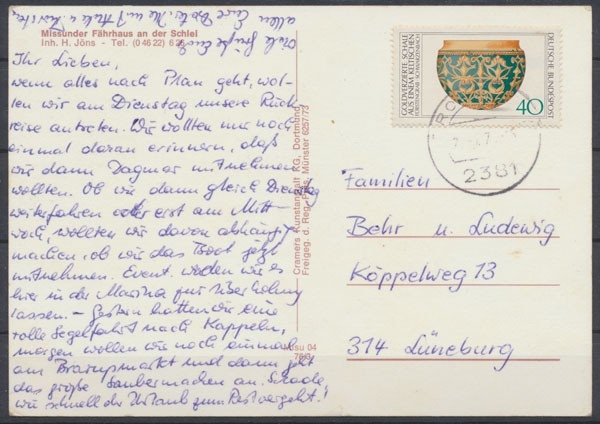 Missunder Fährhaus an der Schlei
Inh. H. Jöns - Tel. (0 46 22) 6
Ihr Lieben,
wenn alles nach Plan geht, wol-
len wir am Dienstag unsere Rück-
reise antreten. Wir wollten nur noch
einmal daran erinnern, daß
wir dann Dagmar mitnehmen
wollten. Ob wir dann gleich Dienstag
weiterfahren oder erst am Mitt-
woch, wollten wir davon abhängig
machen, ob wir das Boot jetzt
mitnehmen. Event. werden wir es
hier in der Marina zur Überholung
lassen. - Gestern hatten wir eine
tolle Segelfahrt nach Kappeln,
morgen wollen wir noch einmal
am Brarupmarkt und dann geht
das große Saubermachen an. Schade,
wie schnell der Urlaub zum Rest vergeht!
Viele Grüße Euch
allen Eure
Cramers Kunstanstalt KG, Dortmund
Freigeg. d. Reg. Präs. Münster 6257/73
Misu 04
GOLDVERZIERTE SCHALE
AUS EINEM KELTISCHEN
FÜRSTENGRAB · SCHWARZENBACH
DEUTSCHE BUNDESPOST
40
2381
Familien
Behr u. Ludewig
Köppelweg 13
314 Lüneburg